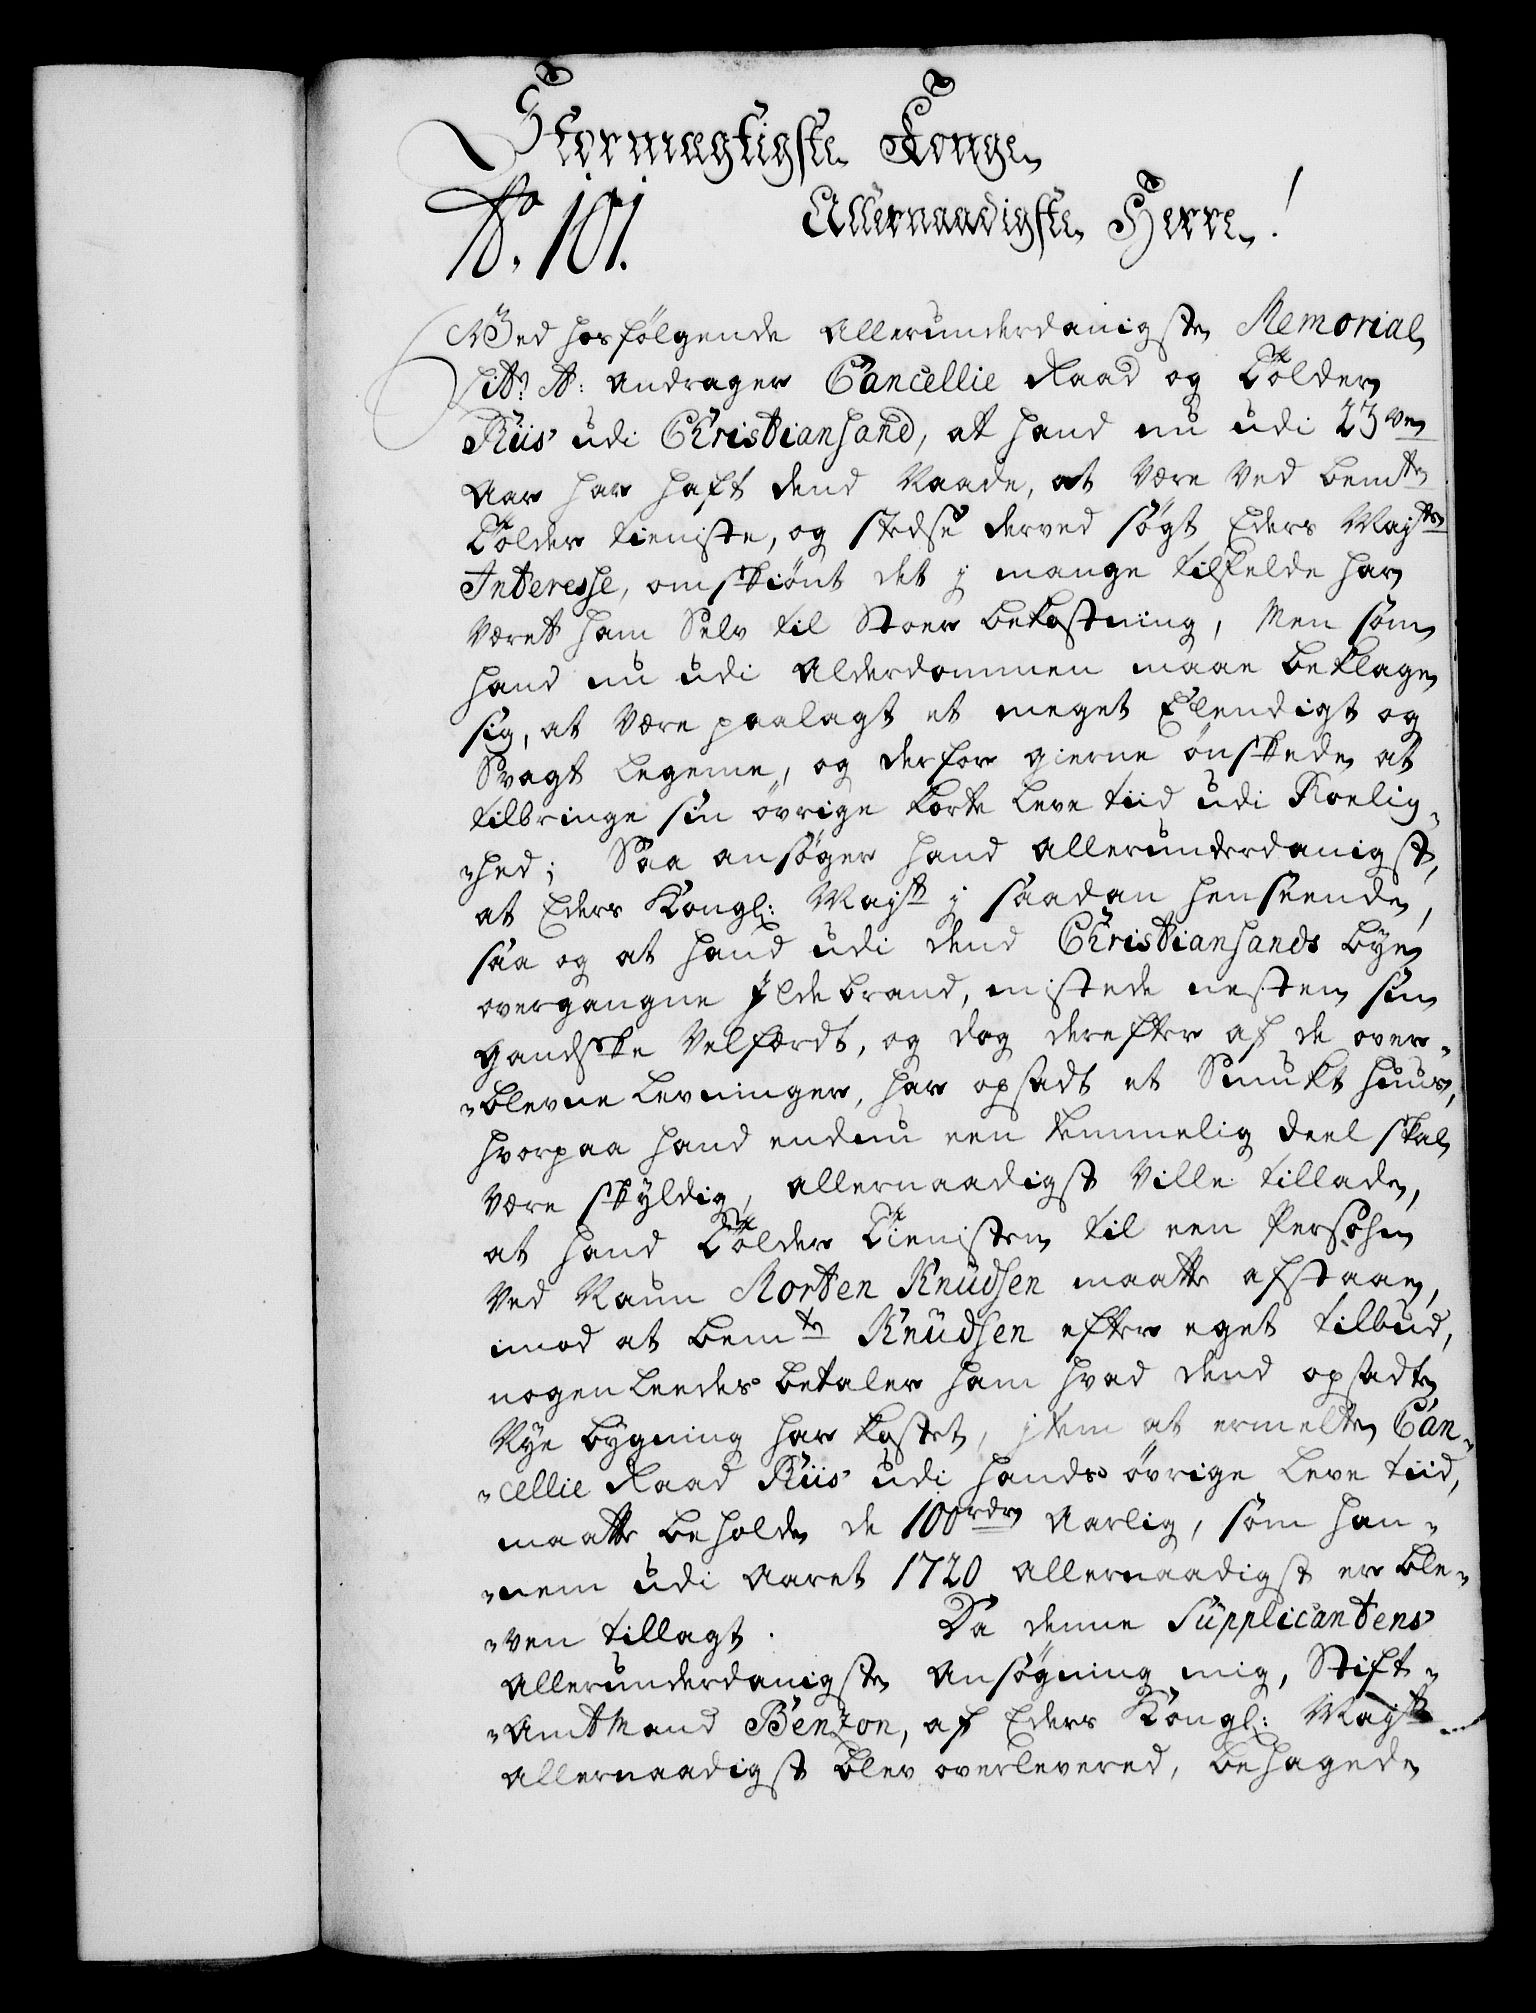 Stormægtigste Konge
No. 101.
Allernaadigste Herre!
Ved hosfølgende allerunderdanigste Memorial
Litr: A: andrager Cancellie Raad og Tolder
Riis udi Christiansand, at hand nu udi 23ve
Aar har haft dend Naade, at være ved bemte
Tolder tieniste, og stedse derved søgt Eders Mayts
Interesse, omskiönt det j mange tilfelde har
været ham Selv til Stoer bekostning, Men som
hand nu udi Alderdommen maae beklage
sig, at være paalagt et meget Elendigt og
Svagt legeme, og derfor gierne önskede at
tilbringe sin øvrige korte leve tiid udi Roelig-
-hed; Saa ansøger hand allerunderdanigst,
at Eders Kongl: Mayst j saadan henseende,
saa og at hand udi dend Christiansands bye
overgangne Jldebrand, mistede nesten sin
gandske Velfærdt, og dog derefter af de over-
-blevne levninger, har opsadt et Smukt huus,
hvorpaa hand endnu een temmelig deel skal
være skyldig, allernaadigst ville tillade,
at hand Tolder Tienisten til een Persohn
ved Naun Morten Knudsen maatte afstaae,
imod at bemte Knudsen efter eget tilbud,
nogenleedes betaler ham hvad dend opsadte
Nye bygning har kostet, jtem at ermelte Can-
-cellie Raad Riis udi hands øvrige leve tiid,
maatte beholde de 100rdr Aarlig, som han-
-nem udi Aaret 1720 allernaadigst er ble-
-ven tillagt. Da denne Supplicantens
allerunderdanigste Ansøgning mig, Stift-
-Amtmand Benzon, af Eders Kongl: Mayst
allernaadigst blev overlevered, behagede